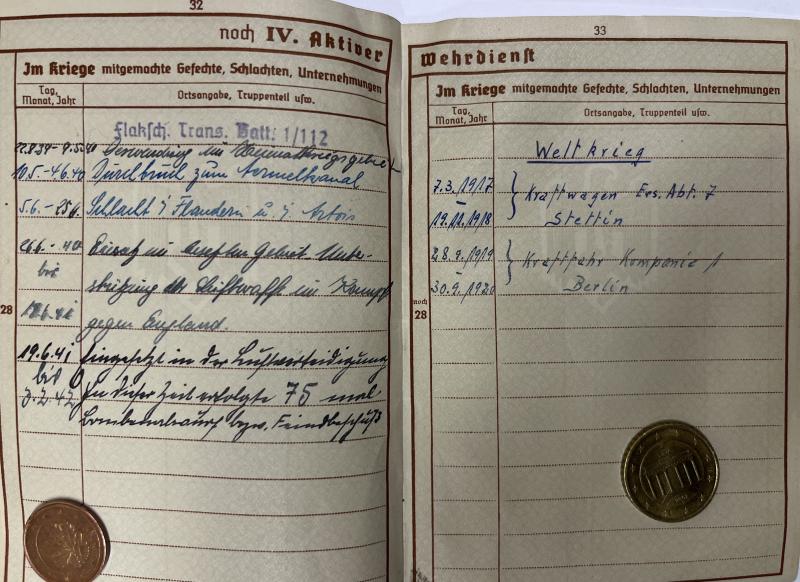 32
noch IV. Aktiver
Im Kriege mitgemachte Gefechte, Schlachten, Unternehmungen
Tag, Monat, Jahr
Ortsangabe, Truppenteil usw.
Flaksch. Trans. Batt. 1/112
Verwendung im Heimatkriegsgebiet
10.5.-4.6.40 Durchbruch zum Aermelkanal
5.6.-25.6. Schlacht i/ Flandern u. i/ Artois
26.6.-40 Einsatz im besetzten Gebiet Unter-
bis stützung der Luftwaffe im Kampf
gegen England.
28
19.6.41 Eingesetzt in der Luftverteidigung
bis In dieser Zeit erfolgte 75 mal
3.2.42 Bombenabwurf bzw. Feindbeschuß
33
Wehrdienst
Im Kriege mitgemachte Gefechte, Schlachten, Unternehmungen
Tag, Monat, Jahr
Ortsangabe, Truppenteil usw.
Weltkrieg
7.3.1917 } Kraftwagen Ers. Abt. 7
19.12.1918 Stettin
28.9.1919 } Kraftfahr Kompanie 1
30.9.1920 Berlin
noch 28